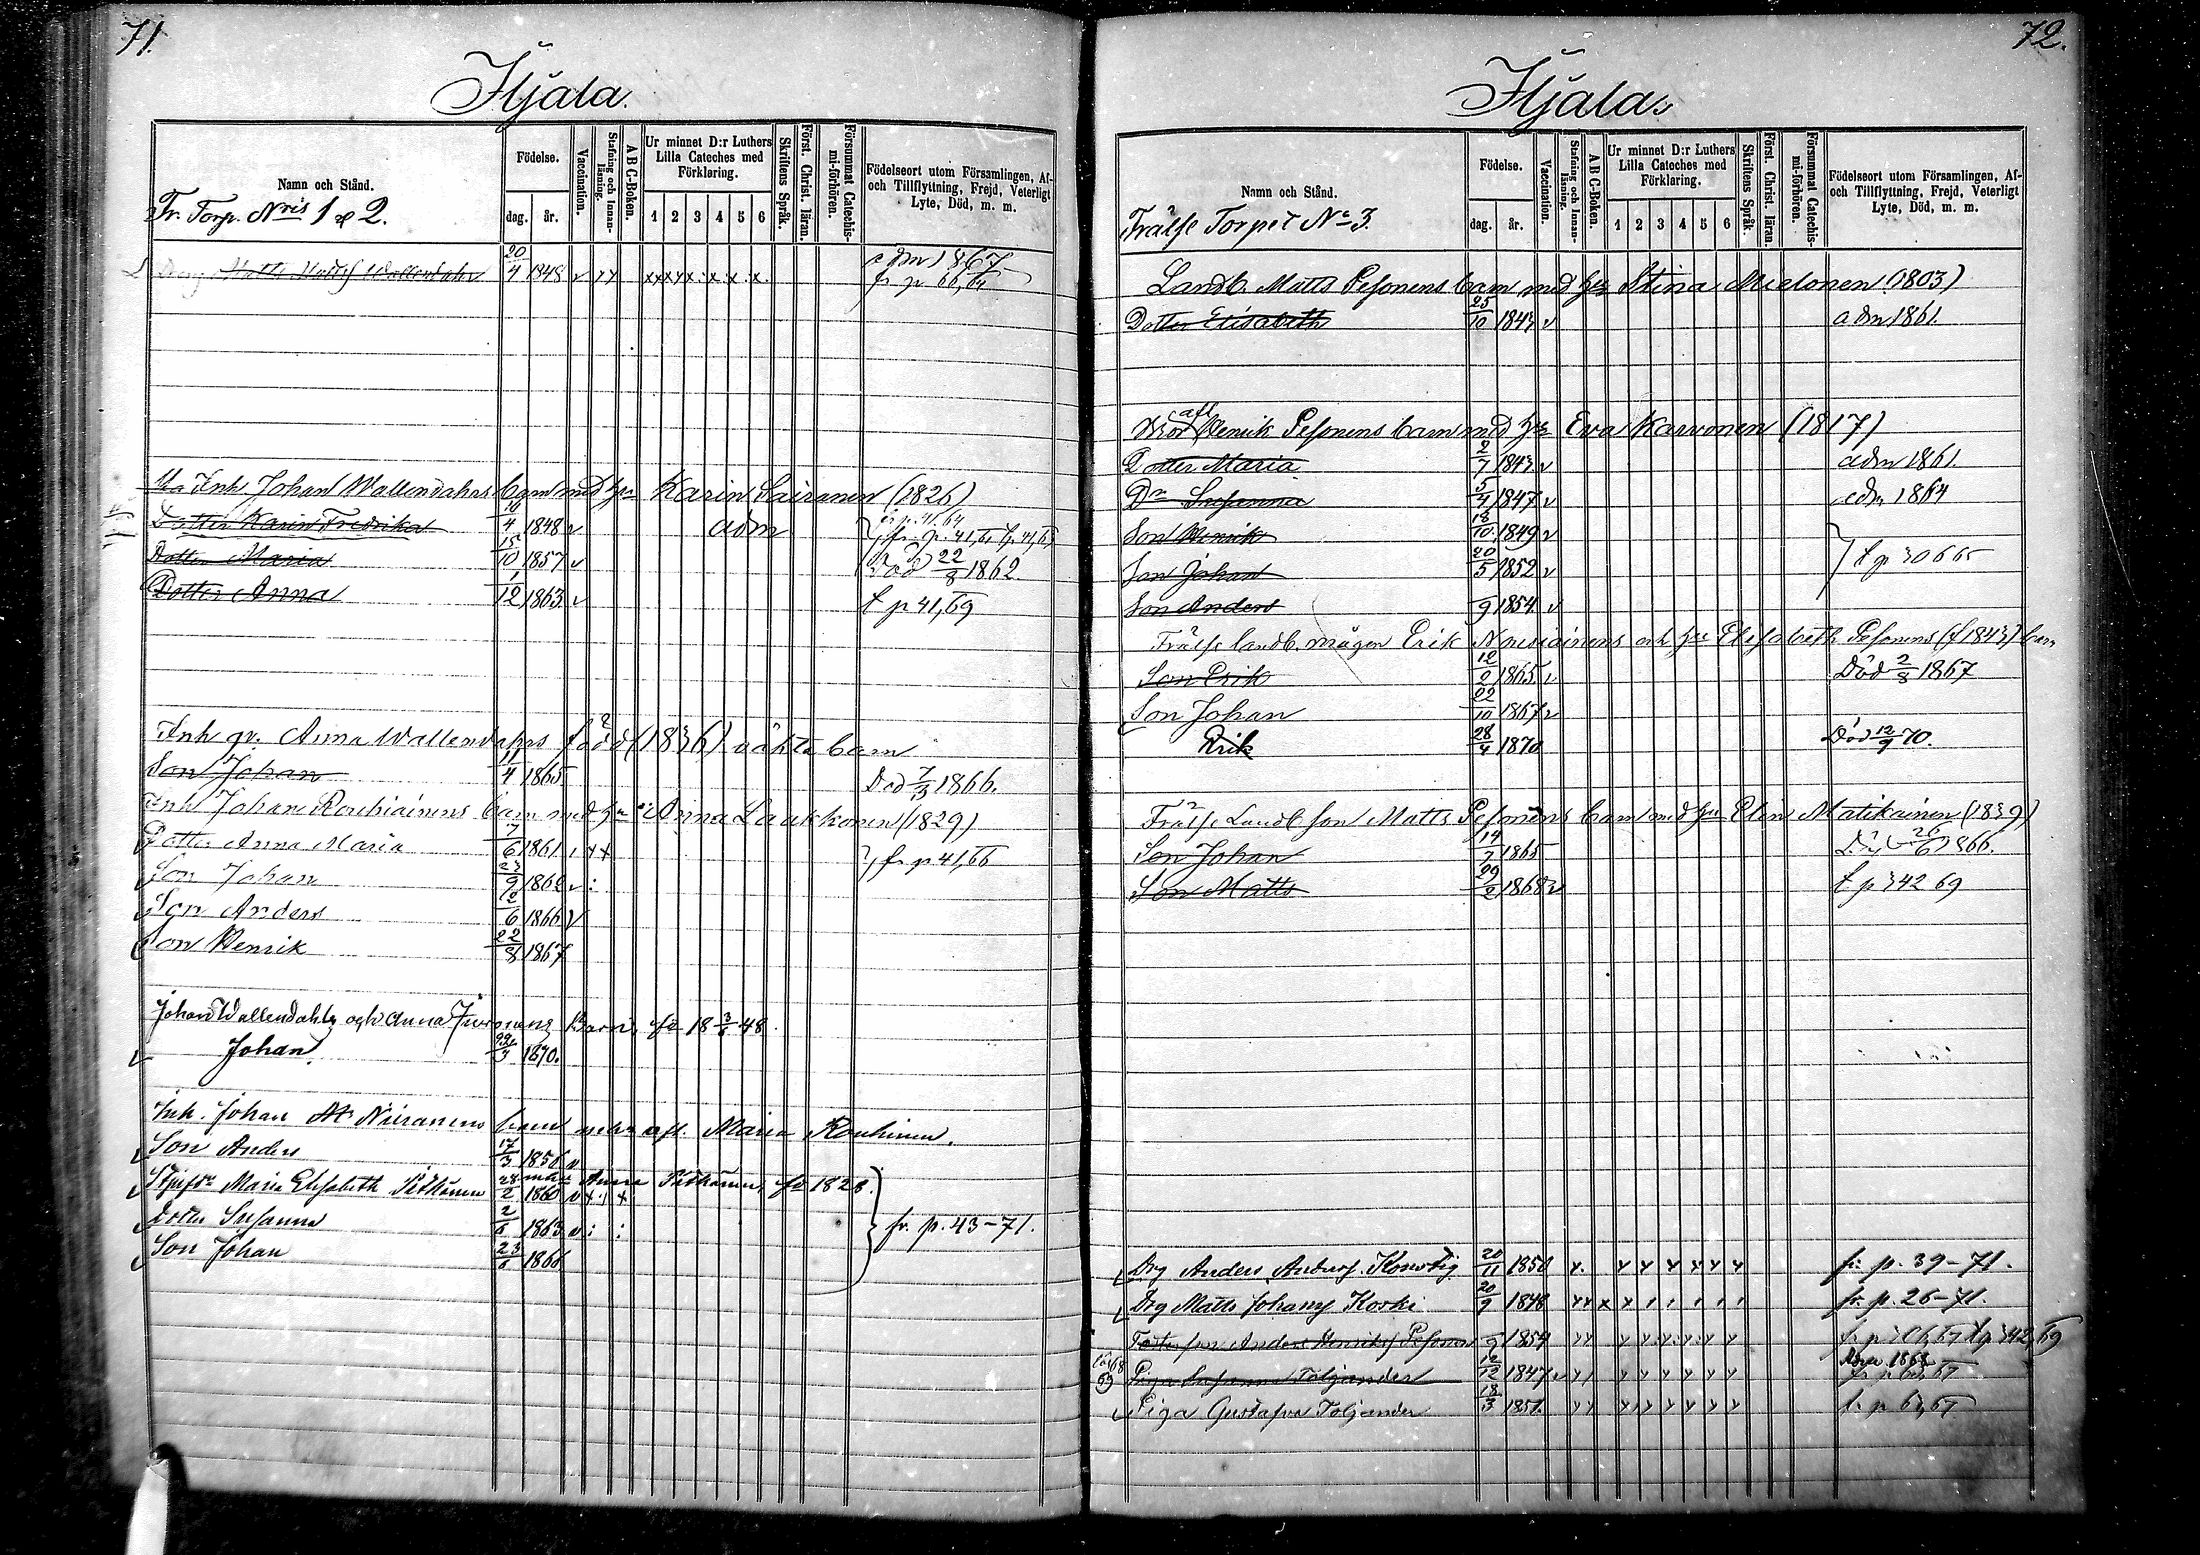 71.
Hjala.
Namn och Stånd.
Fr. Torp. Nris 1 & 2.
Födelse.
dag. år.
Vaccination.
Stafning och Innan-läsning.
A B C-Boken.
Ur minnet D:r Luthers Lilla Cateches med Förklaring.
1 2 3 4 5 6
Skriftens Språk.
Först. Christ. läran.
Försummat Catechis-mi-förhören.
Födelseort utom Församlingen, Af- och Tillflyttning, Frejd, Veterligt Lyte, Död, m. m.
Matts Wallendahr 20/4 1848 adm 1867
Inh Johan Wallendahrs barn med hu Karin Sairanen (1826)
Dotter Karin Fredrika 4 1848 v adm
Dotter Maria 15/10 1857 v Död 22/8 1862
Dotter Anna 1/12 1863 v t p 41,69
Inh qv. Anna Wallendahrs född (1836) oäkta barn
Son Johan 11/4 1865 Död 1866.
Inh Johan Rouhiainens barn med hu Anna Laukkonen (1829)
Dotter Anna Maria 7/6 1861 fr p 41,66
Son Johan
Son Anders 12/6 1866 v
Son Henrik 22/8 1867
Johan Wallendahls och Anna Barn, fö 18 3/6 48.
Johan 1870.
Inh. Johan Niiranens barn med afl. Maria Rouhinen.
Son Anders 17/3 1856 v
Maria Elisabeth Pitkänen 28/2 1860 Anna Pitkänen, fö 1828.
Dotter Susanna 2/6 1863 fr. p. 43-71.
Son Johan 23/6 1866
72.
Hjala.
Namn och Stånd.
Frälse Torpet No 3.
Födelse.
dag. år.
Vaccination.
Stafning och Innan-läsning.
A B C-Boken.
Ur minnet D:r Luthers Lilla Cateches med Förklaring.
1 2 3 4 5 6
Skriftens Språk.
Först. Christ. läran.
Försummat Catechis-mi-förhören.
Födelseort utom Församlingen, Af- och Tillflyttning, Frejd, Veterligt Lyte, Död, m. m.
Landb. Matts Pesonens barn med hu Stina Mielonen (1803)
Dotter Elisabeth 25/10 1843 v adm 1861.
afl
Henrik Pesonens barn med hu Eva Karvonen (1817)
Dotter Maria 2/7 1843 v adm 1861.
Dr Susanna 5/4 1847 v adm 1864
Son Henrik 18/10 1849 v
Son Johan 20/5 1852 v
Son Anders 9 1854 v
Frälse landb. mågen Erik Nousiainens och hu Elisabeth Pesonens (f 1843) barn
Son Erik 12/2 1865 v Död 2/8 1867
Son Johan 22/10 1867 v
Erik 28/4 1870 Död 12/9 70.
Frälse Landb son Matts Pesonens barn med hu Elin Matikainen (1839)
Son Johan 14/7 1865 Död 26/6 1866.
Son Matts 29/2 1868 v t p 342 69
Drg Anders Andersf. 20/11 1850 fr. p. 39-71.
Drg Matts Johansf Koski 20/9 1848 fr. p. 26-71.
Foster son Anders Henriksf Pesonen 9 1854
Piga Susanna Toljander 12/12 1847 v
Piga Gustafva Toljander 18/3 1851. fr p 67,67